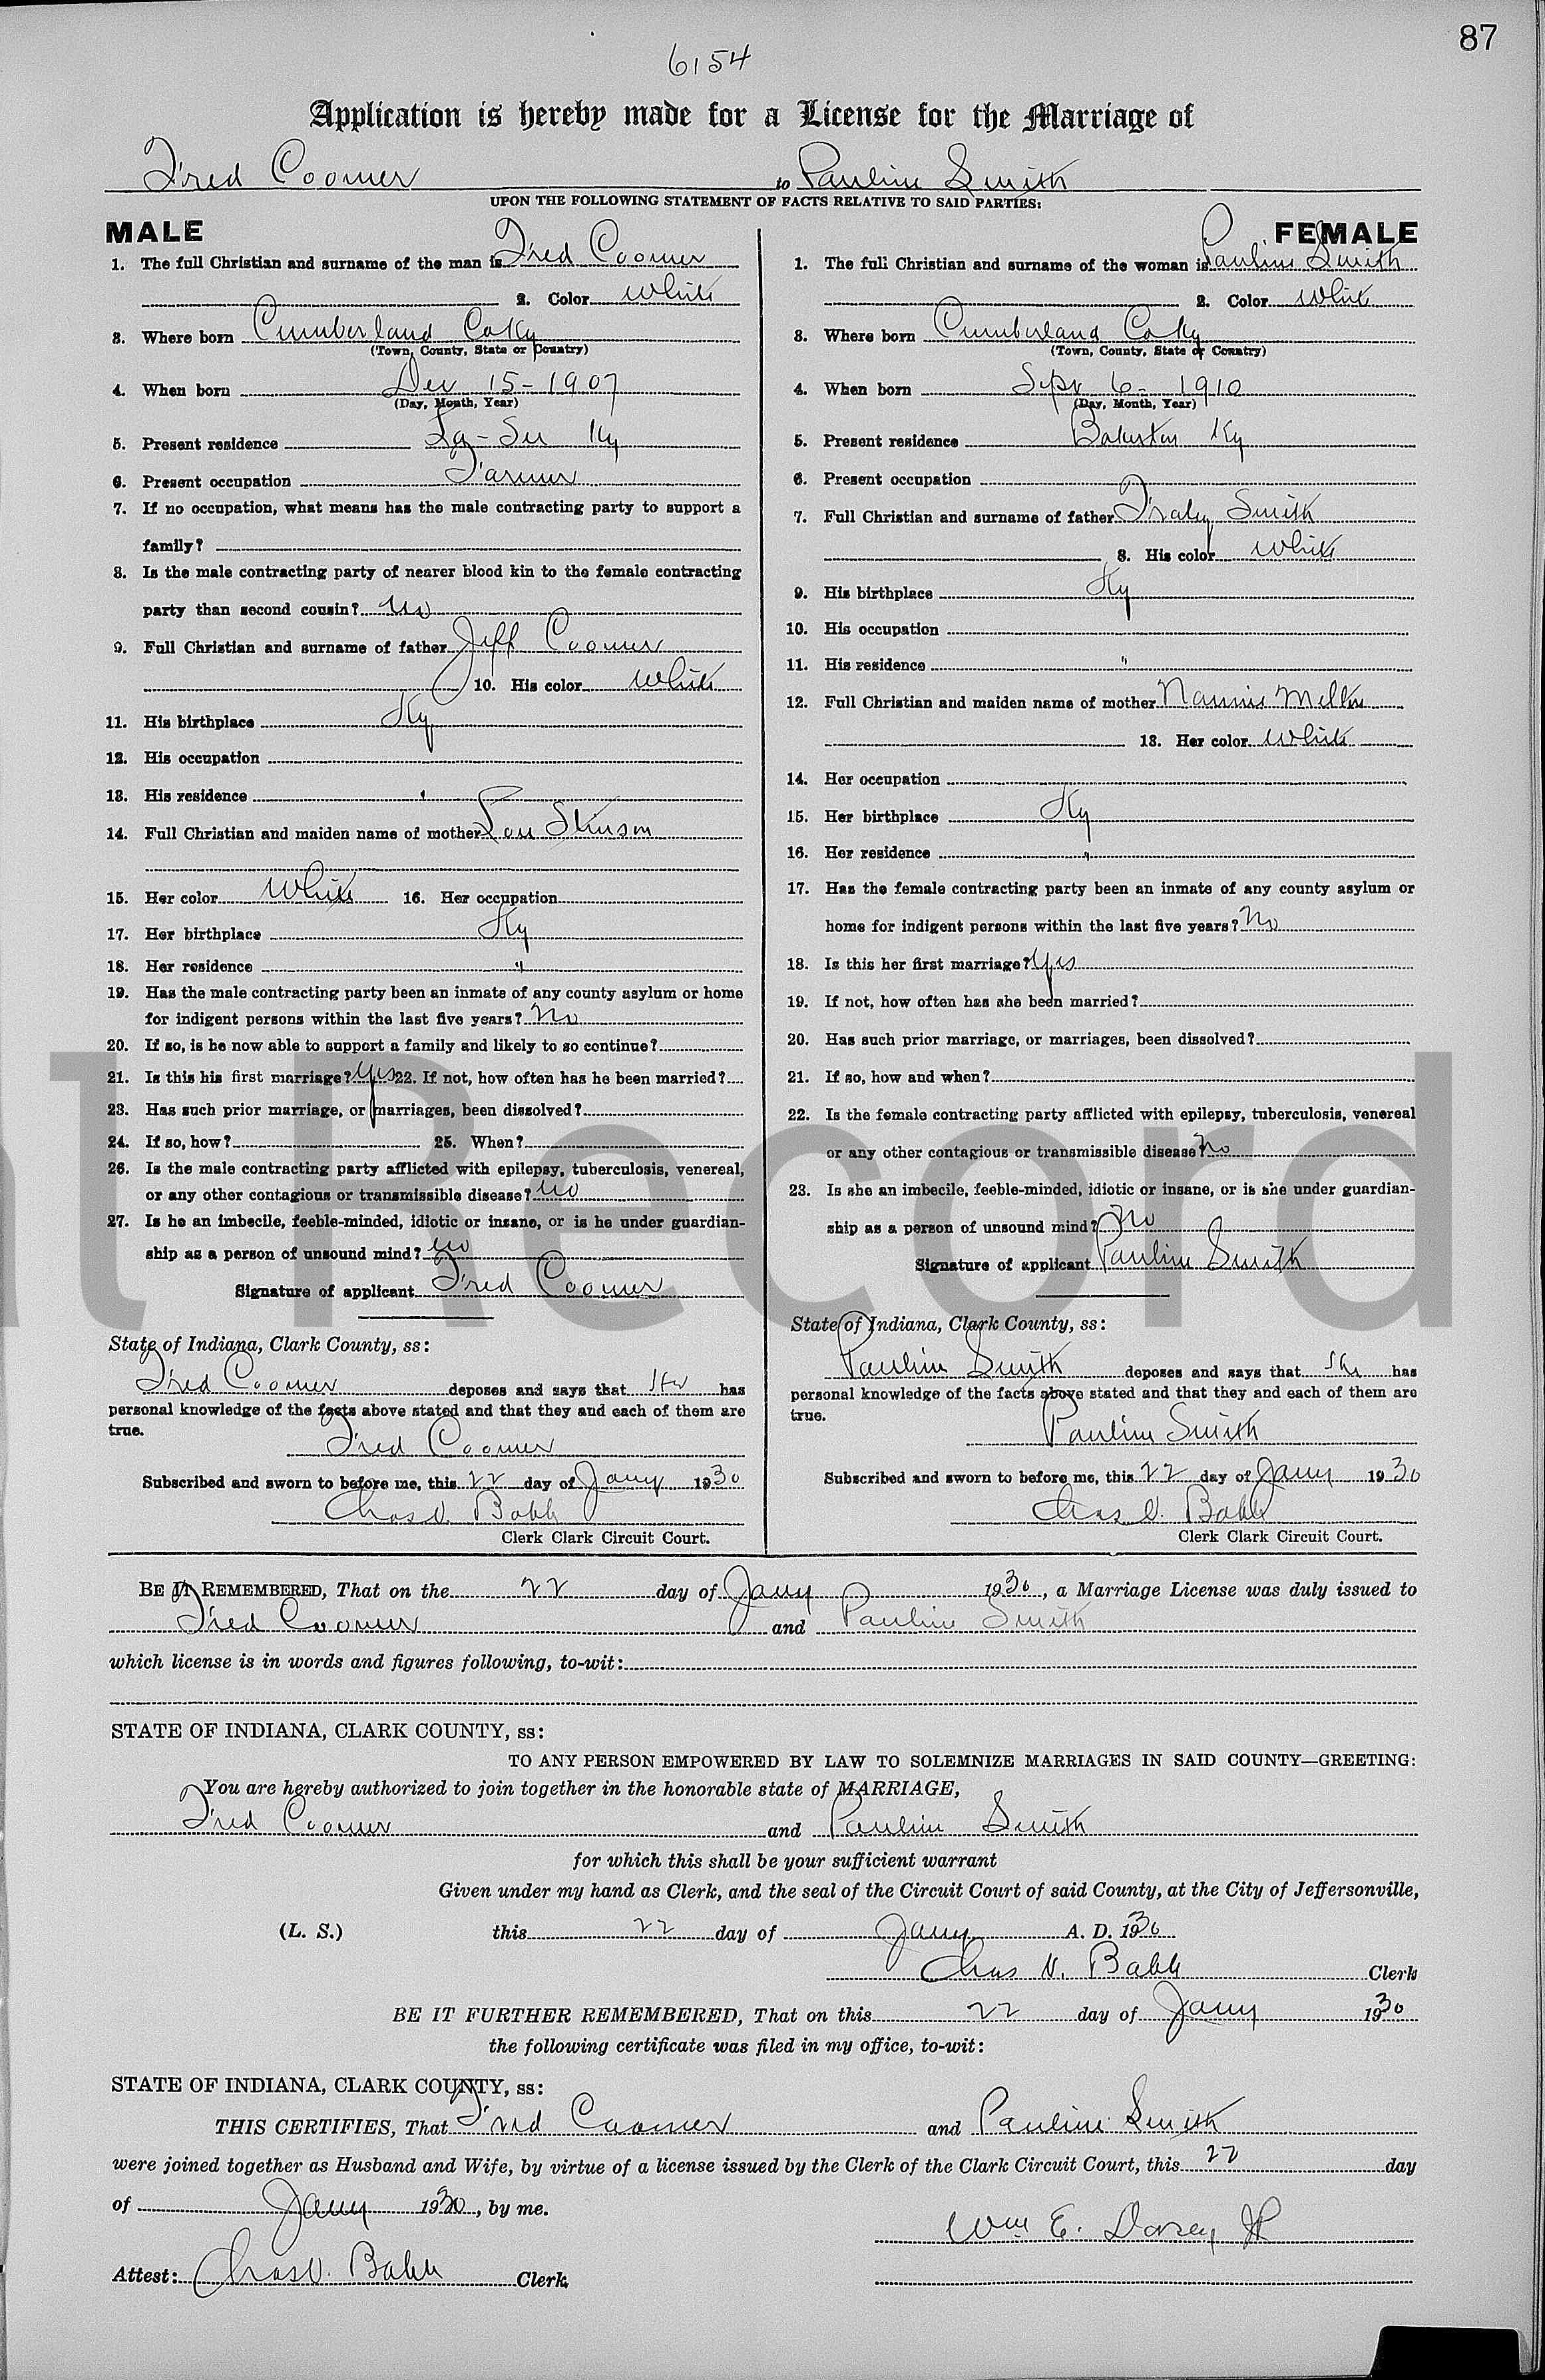 87
6154
Application is hereby made for a License for the Marriage of
Fred Coomer to Pauline Smith
UPON THE FOLLOWING STATEMENT OF FACTS RELATIVE TO SAID PARTIES:
MALE
1. The full Christian and surname of the man is Fred Coomer
2. Color White
3. Where born Cumberland Co Ky
(Town, County, State or Country)
4. When born Dec 15 - 1907
(Day, Month, Year)
5. Present residence Ky
6. Present occupation Farmer
7. If no occupation, what means has the male contracting party to support a
family?
8. Is the male contracting party of nearer blood kin to the female contracting
party than second cousin? No
9. Full Christian and surname of father Jeff Coomer
10. His color White
11. His birthplace Ky
12. His occupation
13. His residence "
14. Full Christian and maiden name of mother Lou Stinson
15. Her color White 16. Her occupation
17. Her birthplace Ky
18. Her residence "
19. Has the male contracting party been an inmate of any county asylum or home
for indigent persons within the last five years? No
20. If so, is he now able to support a family and likely to so continue?
21. Is this his first marriage? Yes 22. If not, how often has he been married?
23. Has such prior marriage, or marriages, been dissolved?
24. If so, how? 25. When?
26. Is the male contracting party afflicted with epilepsy, tuberculosis, venereal,
or any other contagious or transmissible disease? No
27. Is he an imbecile, feeble-minded, idiotic or insane, or is he under guardian-
ship as a person of unsound mind? No
Signature of applicant Fred Coomer
State of Indiana, Clark County, ss:
Fred Coomer deposes and says that He has
personal knowledge of the facts above stated and that they and each of them are
true.
Fred Coomer
Subscribed and sworn to before me, this 22 day of Jany 1930
Chas V. Babb
Clerk Clark Circuit Court.
FEMALE
1. The full Christian and surname of the woman is Pauline Smith
2. Color White
3. Where born Cumberland Co Ky
(Town, County, State or Country)
4. When born Sept 6 - 1910
(Day, Month, Year)
5. Present residence Ky
6. Present occupation
7. Full Christian and surname of father Smith
8. His color White
9. His birthplace Ky
10. His occupation
11. His residence "
12. Full Christian and maiden name of mother Nannie Miller
13. Her color White
14. Her occupation
15. Her birthplace Ky
16. Her residence "
17. Has the female contracting party been an inmate of any county asylum or
home for indigent persons within the last five years? No
18. Is this her first marriage? Yes
19. If not, how often has she been married?
20. Has such prior marriage, or marriages, been dissolved?
21. If so, how and when?
22. Is the female contracting party afflicted with epilepsy, tuberculosis, venereal
or any other contagious or transmissible disease? No
23. Is she an imbecile, feeble-minded, idiotic or insane, or is she under guardian-
ship as a person of unsound mind? No
Signature of applicant Pauline Smith
State of Indiana, Clark County, ss:
Pauline Smith deposes and says that She has
personal knowledge of the facts above stated and that they and each of them are
true.
Pauline Smith
Subscribed and sworn to before me, this 22 day of Jany 1930
Chas V. Babb
Clerk Clark Circuit Court.
BE IT REMEMBERED, That on the 22 day of Jany 1930, a Marriage License was duly issued to
Fred Coomer and Pauline Smith
which license is in words and figures following, to-wit:
STATE OF INDIANA, CLARK COUNTY, ss:
TO ANY PERSON EMPOWERED BY LAW TO SOLEMNIZE MARRIAGES IN SAID COUNTY—GREETING:
You are hereby authorized to join together in the honorable state of MARRIAGE,
Fred Coomer and Pauline Smith
for which this shall be your sufficient warrant
Given under my hand as Clerk, and the seal of the Circuit Court of said County, at the City of Jeffersonville,
(L. S.) this 22 day of Jany A. D. 1930
Chas V. Babb Clerk
BE IT FURTHER REMEMBERED, That on this 22 day of Jany 1930
the following certificate was filed in my office, to-wit:
STATE OF INDIANA, CLARK COUNTY, ss:
THIS CERTIFIES, That Fred Coomer and Pauline Smith
were joined together as Husband and Wife, by virtue of a license issued by the Clerk of the Clark Circuit Court, this 22 day
of Jany 1930, by me.
Wm E. Dorsey JP
Attest: Chas V. Babb Clerk
l Record